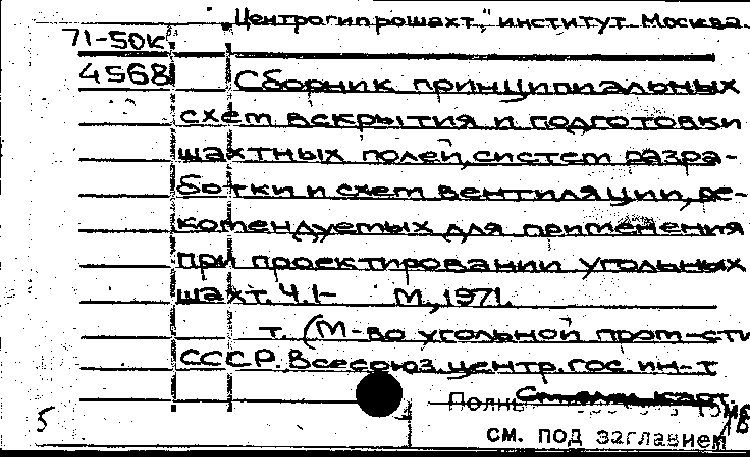 Центрогипрошахт," институт. Москва.
71-50к
4568 Сборник принципиальных
схем вскрытия и подготовки
шахтных полей, систем разра-
ботки и схем вентиляции, ре-
комендуемых для применения
при проектировании угольных
шахт. Ч.1- М., 1971.
т. (М-во угольной пром-сти
СССР. Всесоюз. центр. гос. ин-т
5
см. под заглавием